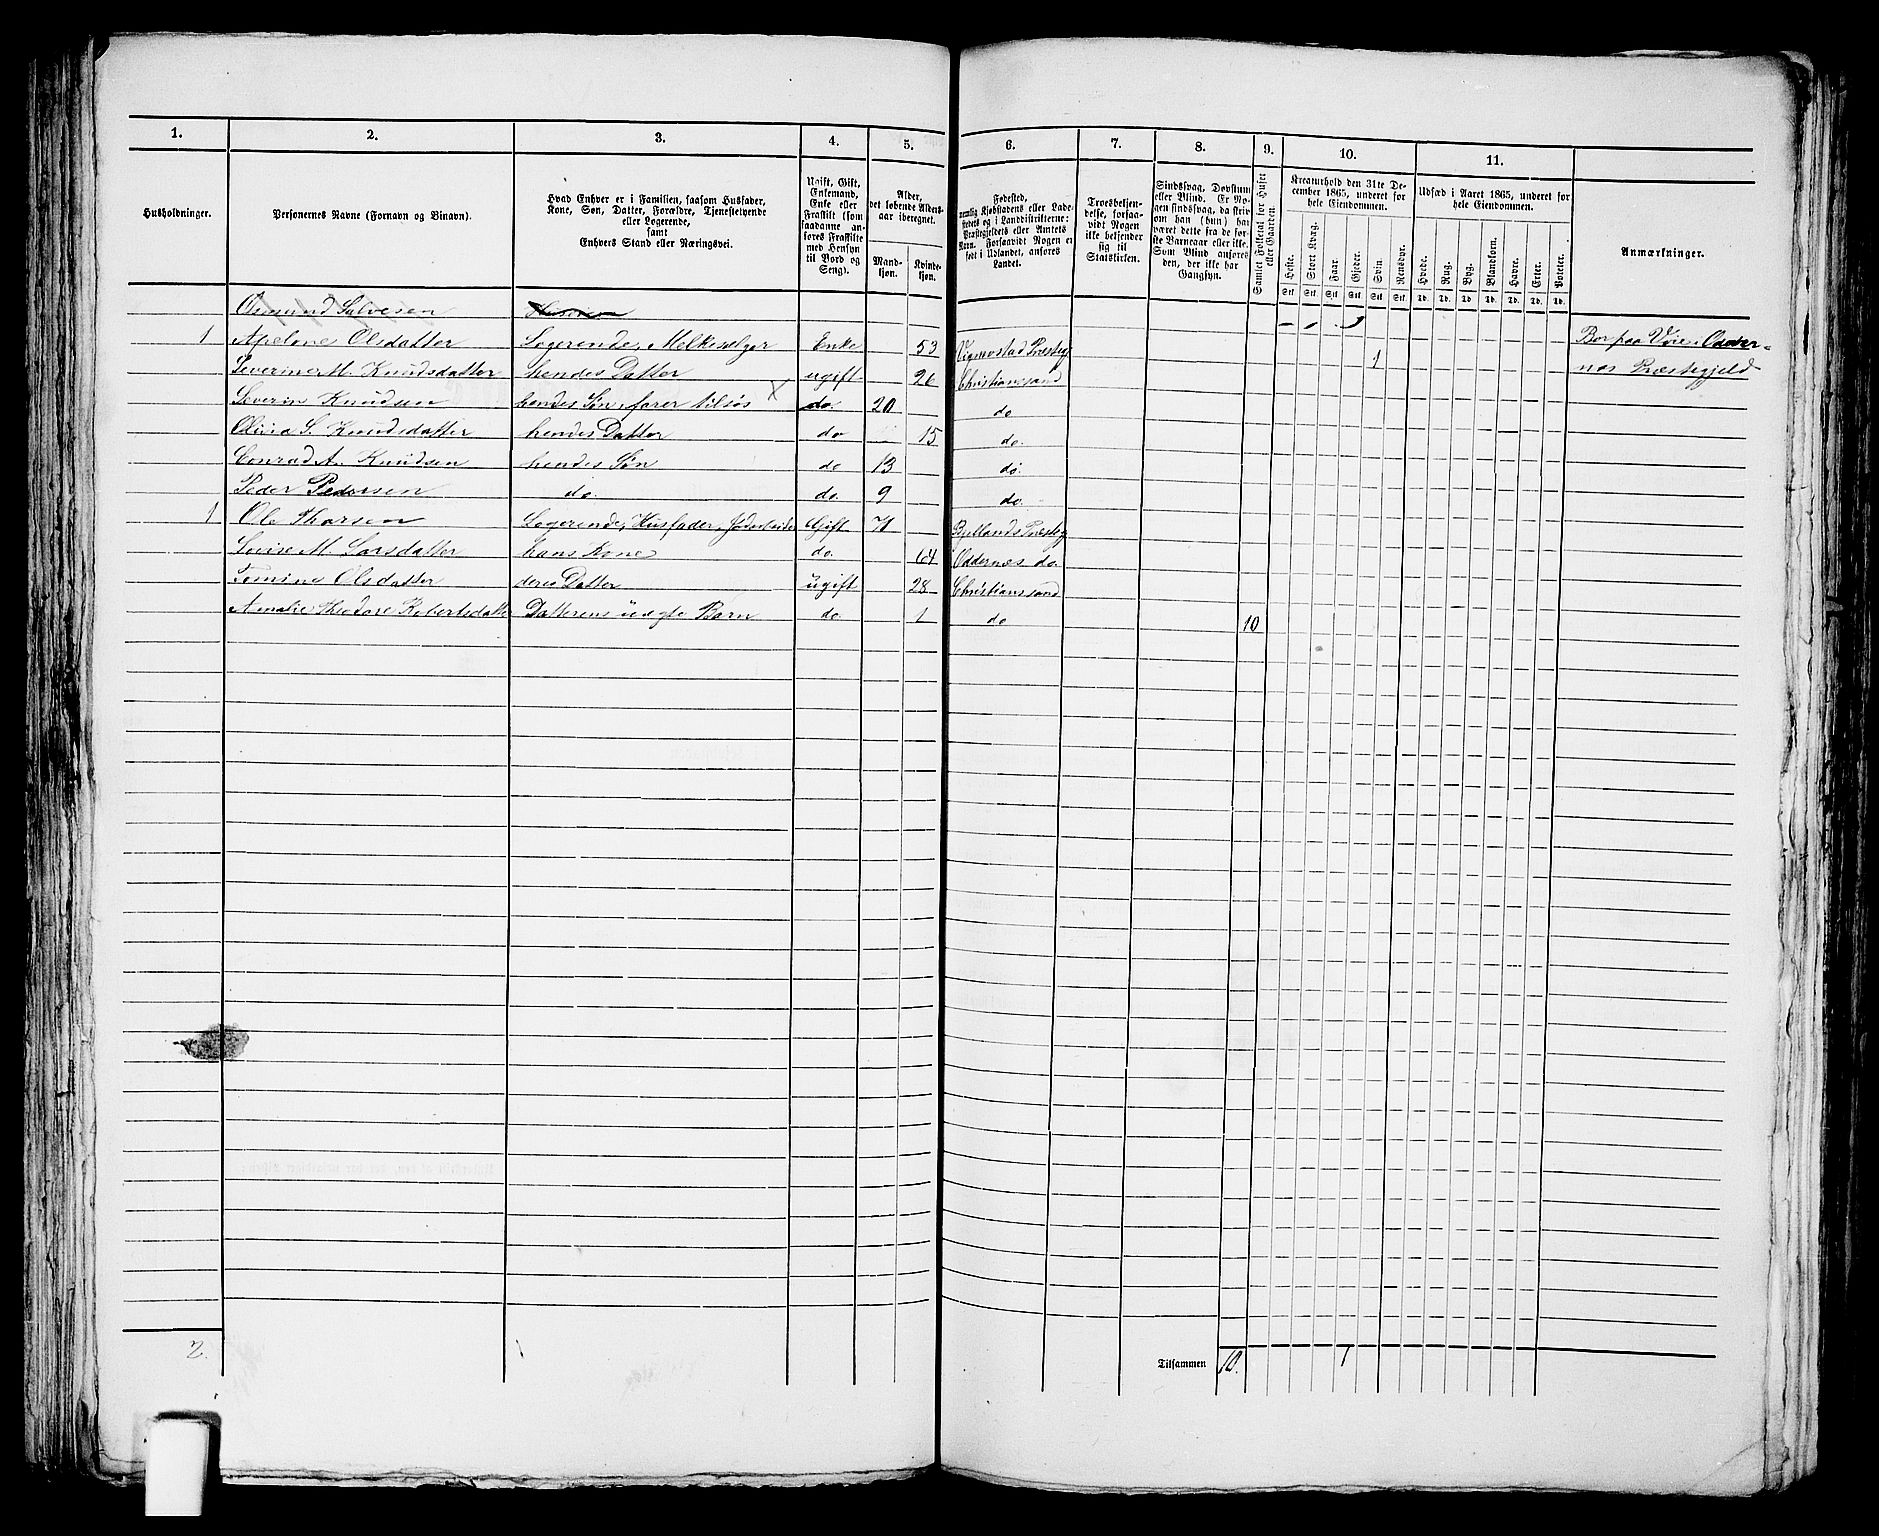 1. 2. 3. 4. 5. 6. 7. 8. 9. 10. 11.
Husholdninger.
Personernes Navne (Fornavn og Binavn).
Hvad Enhver er i Familien, saasom Husfader,
Kone, Søn, Datter, Forældre, Tjenestetyende
eller Logerende,
samt
Enhvers Stand eller Næringsvei.
Ugift, Gift,
Enkemand,
Enke eller
Fraskilt (som
saadanne an-
føres Fraskilte
med Hensyn
til Bord og
Seng).
Alder,
det løbende Alders-
aar iberegnet.
Mand-
kjøn.
Kvinde-
kjøn.
Fødested,
nemlig Kjøbstadens eller Lade-
stedets og i Landdistrikterne:
Præstegjeldets eller Amtets
Navn. Forsaavidt Nogen er
født i Udlandet, anføres
Landet.
Troesbekjen-
delse, forsaa-
vidt Nogen
ikke bekjender
sig til
Statskirken.
Sindssvag, Døvstum
eller Blind. Er No-
gen sindssvag, da skriv
om han (hun) har
været dette fra de før-
ste Barneaar eller ikke.
Som Blind anføres
den, der ikke har
Gangsyn.
Samlet Folketal for Huset
eller Gaarden.
Kreaturhold den 31te De-
cember 1865, underet for
hele Eiendommen.
Heste. Stort Kvæg. Faar. Gjeder. Svin. Rensdyr.
Stk. Stk. Stk. Stk. Stk. Stk.
Udsæd i Aaret 1865, underet for
hele Eiendommen.
Hvede. Rug. Byg. Blandkorn. Havre. Erter. Poteter.
Td. Td. Td. Td. Td. Td. Td.
Anmærkninger.
Osmund Salvesen
1 Apelone Olsdatter Logerende, Melkesælger Enke 53 Vigmostad Præsteg Bor paa Vøie i Odder-
Severine M. Knudsdatter hendes Datter ugift 26 Christianssand 1 næs Præstegjeld
Severin Knudsen hendes Søn, farer tilsøs X do. 20 do
Olivia S. Knudsdatter hendes Datter do 15 do.
Conrad A. Knudsen hendes Søn do 13 do.
Peder Pedersen do. do. 9 do.
1 Ole Tharsen Logerende, Husfader, Jordarbeider Gift 71 Bjellands Præsteg
Lovise M. Larsdatter hans Kone do. 64 Oddernæs do.
Tomine Olsdatter deres Datter ugift 28 Christianssand
Amalie Theodore Robertsdatter Datterens uægte Barn do. 1 do 10
2. Tilsammen 10. 1